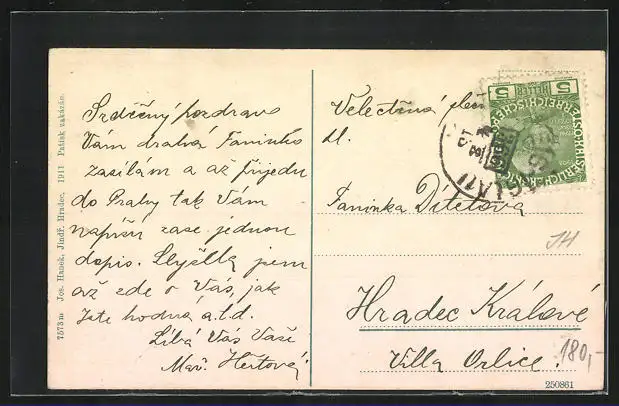 7573 m Jos. Hanek, Jindř. Hradec, 1911 Patisk zakázán.
Srdečný pozdrav
Vám drahá Faninko
zasílám a až přijedu
do Prahy tak Vám
napíšu zase jednou
dopis. Slyšela jsem
až zde o Vás, jak
jste hodná a.t.d.
Líbá Vás Vaše
Mař. Hertová
Velectěná slen
Faninka Dítětová
Hradec Králové
Villa Orlice.
5 HELLER 5
180,-
250861